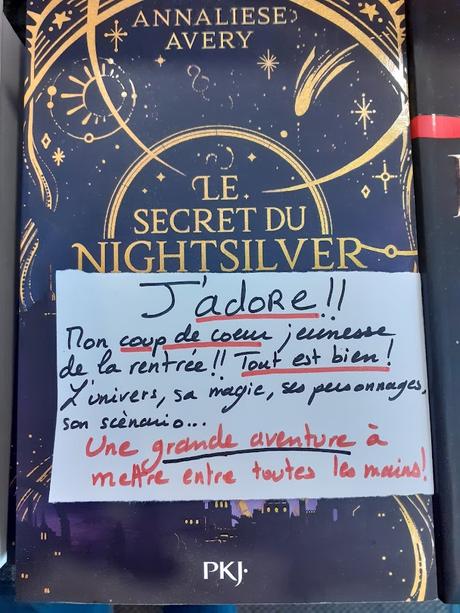 ANNALIESE
AVERY
LE
SECRET DU
NIGHTSILVER
J'adore!!
Mon coup de coeur jeunesse
de la rentrée!! Tout est bien!
L'univers, sa magie, ses personnages,
son scènario...
Une grande aventure à
mettre entre toutes les mains!
PKJ.